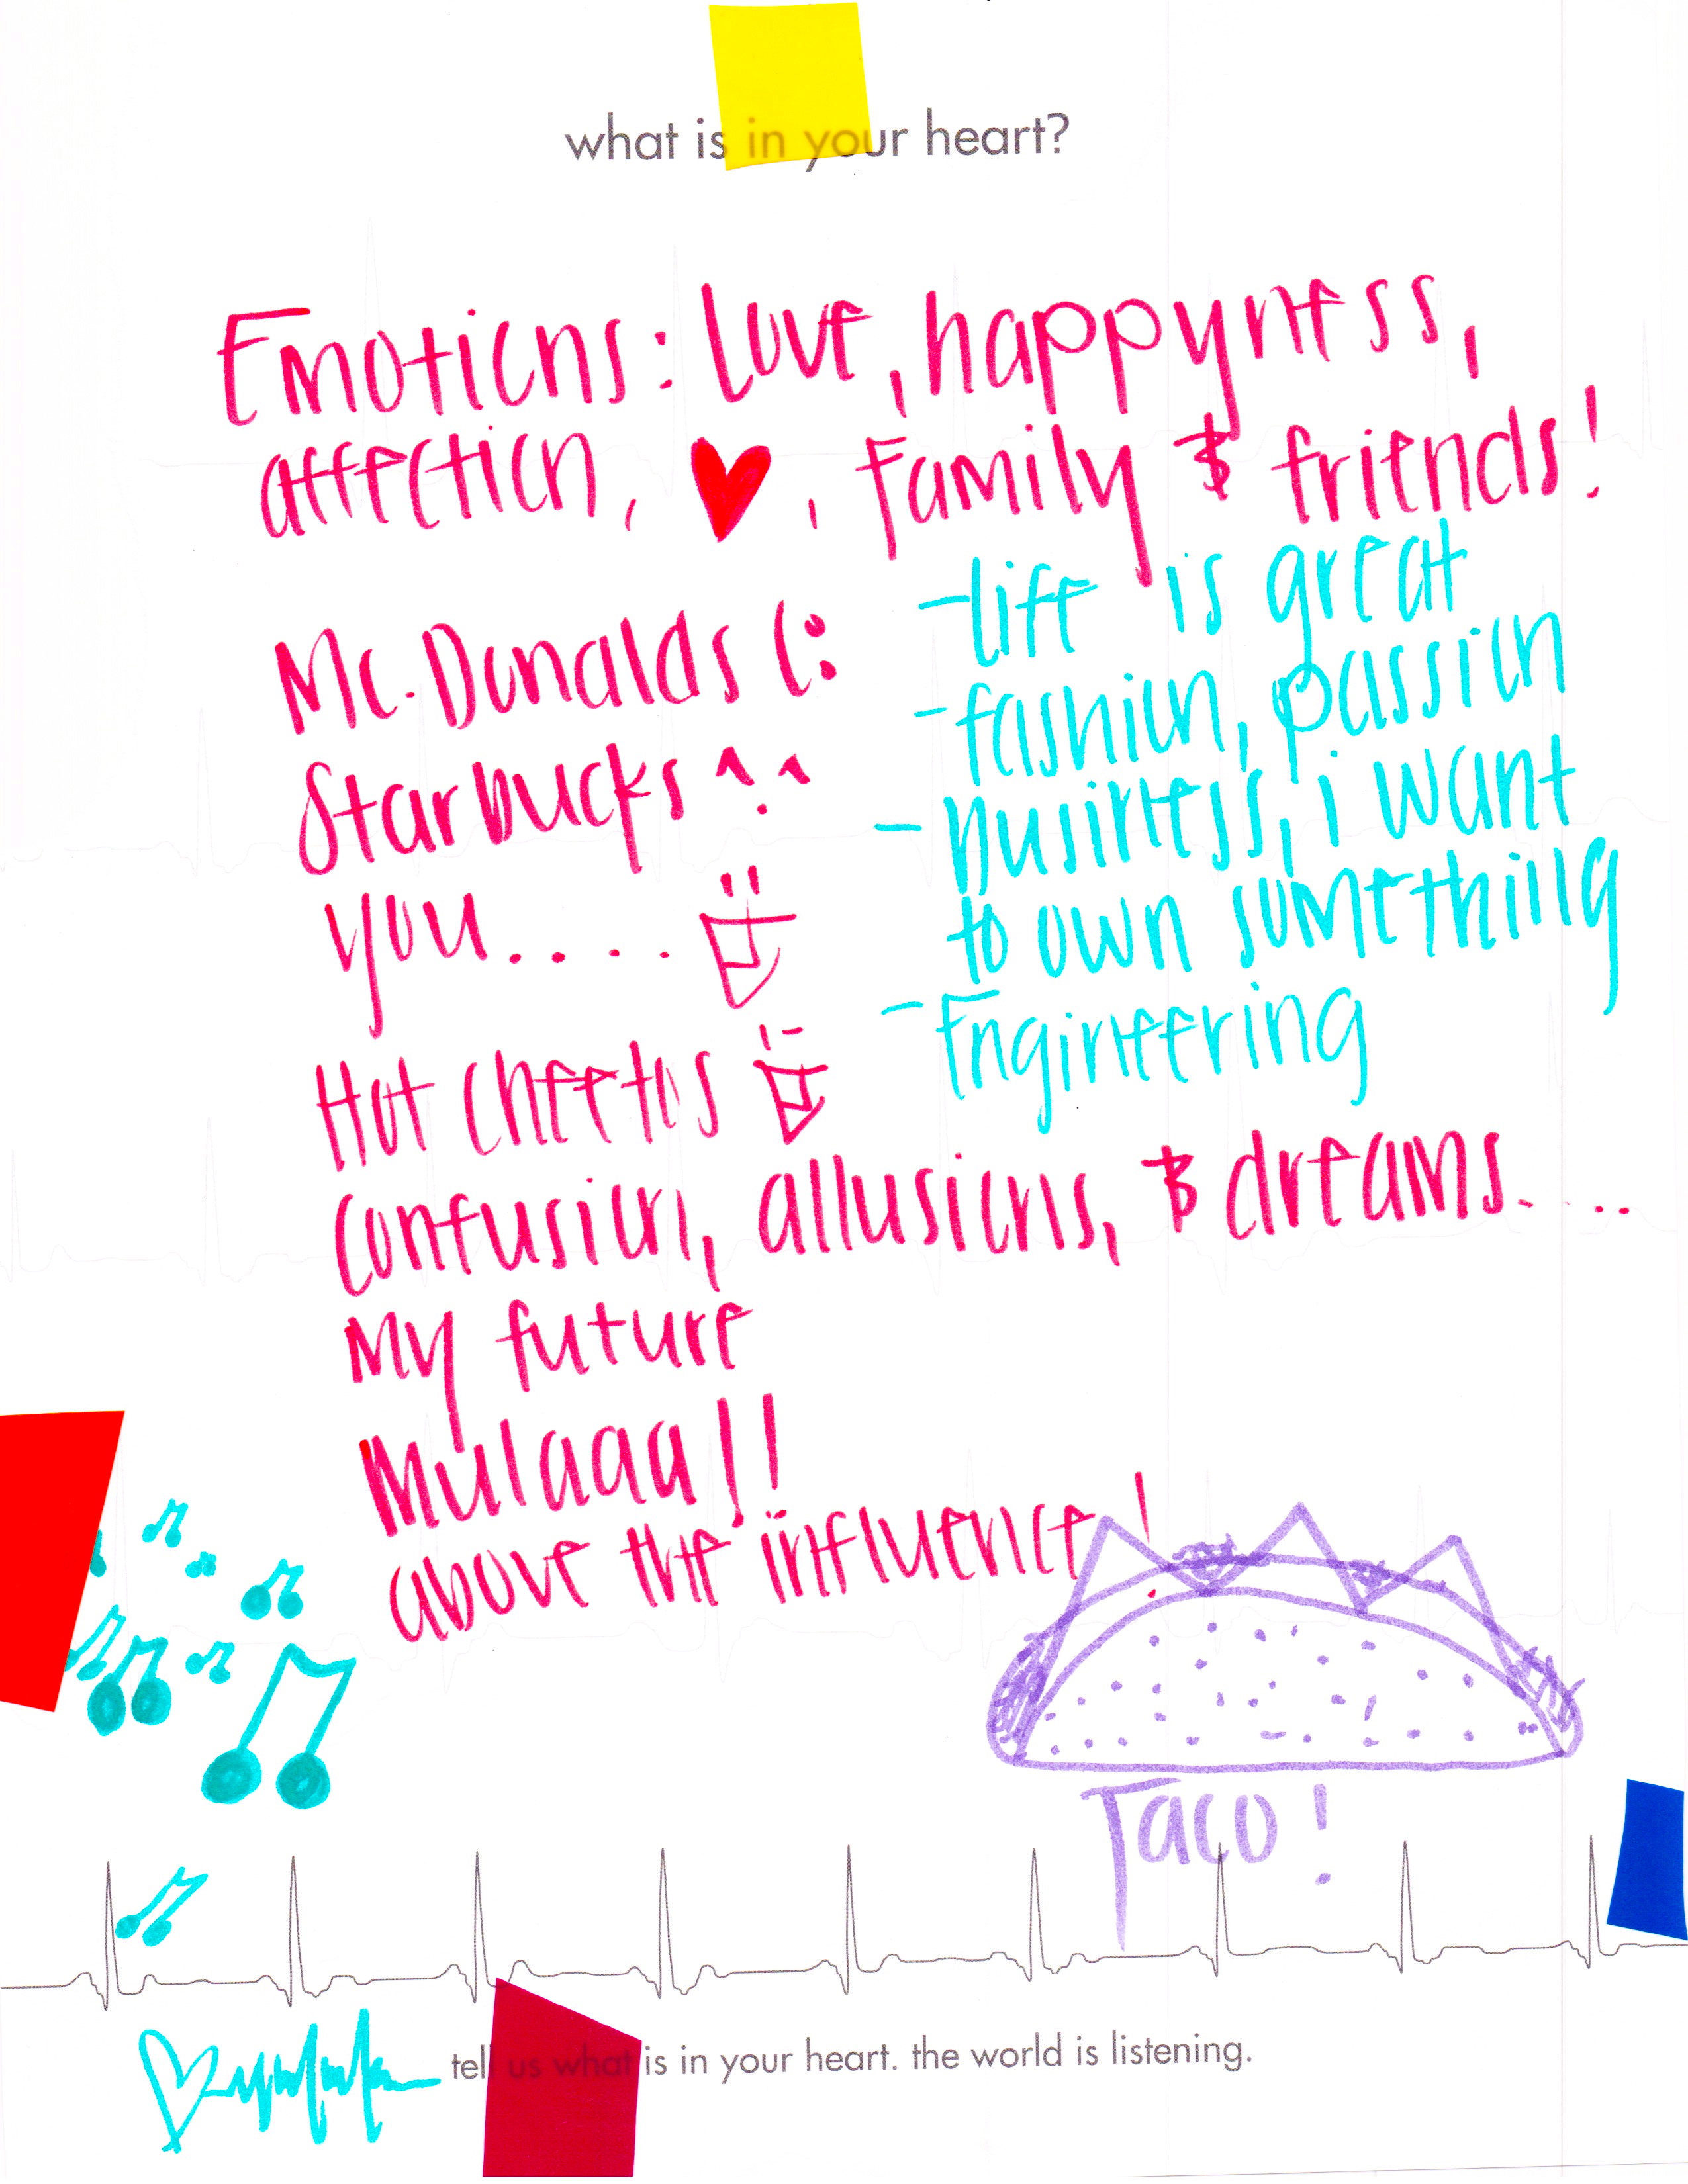 what is in your heart?
Emotions: Love, happyness,
affection, ♥, Family & friends!
Mc.Donalds (:
Starbucks ^.^
you.....
Hot cheetos
-life is great
-fashion, passion
-business, i want
to own something
-Engineering
confusion, allusions, & dreams.....
My future
Mulaaa!!
above the influence!
Taco!
tell us what is in your heart. the world is listening.